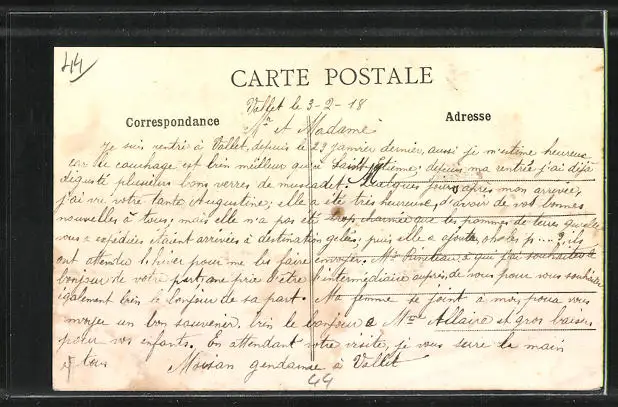 44
CARTE POSTALE
Vallet le 3-2-18
Correspondance
Adresse
Mr et Madame
Je suis rentré à Vallet, depuis le 29 janvier dernier, aussi je m'estime heureux
car le couchage est bien meilleur qu'à Saint Etienne; depuis ma rentrée j'ai déjà
dégusté plusieurs bons verres de muscadet. Quelques jours après mon arrivée,
j'ai vu votre tante Augustine; elle a été très heureuse d'avoir de vos bonnes
nouvelles à tous; mais elle n'a pas été trop charmée que les pommes de terres qu'elle
vous a expédiées étaient arrivées à destination gelées; puis elle a ajouté, oh les p....? ils
ont attendu l'hiver pour me les faire envoyer. Mr que j'ai souhaité le
bonjour de votre part, me prie d'être l'intermédiaire auprès de vous pour vous souhaiter
également bien le bonjour de sa part. Ma femme se joint à moi, pour vous
envoyer un bon souvenir, bien le bonjour à Mme Allaire et gros baisers
pour vos enfants. En attendant votre visite, je vous serre la main
à tous Moisan gendarme à Vallet
44